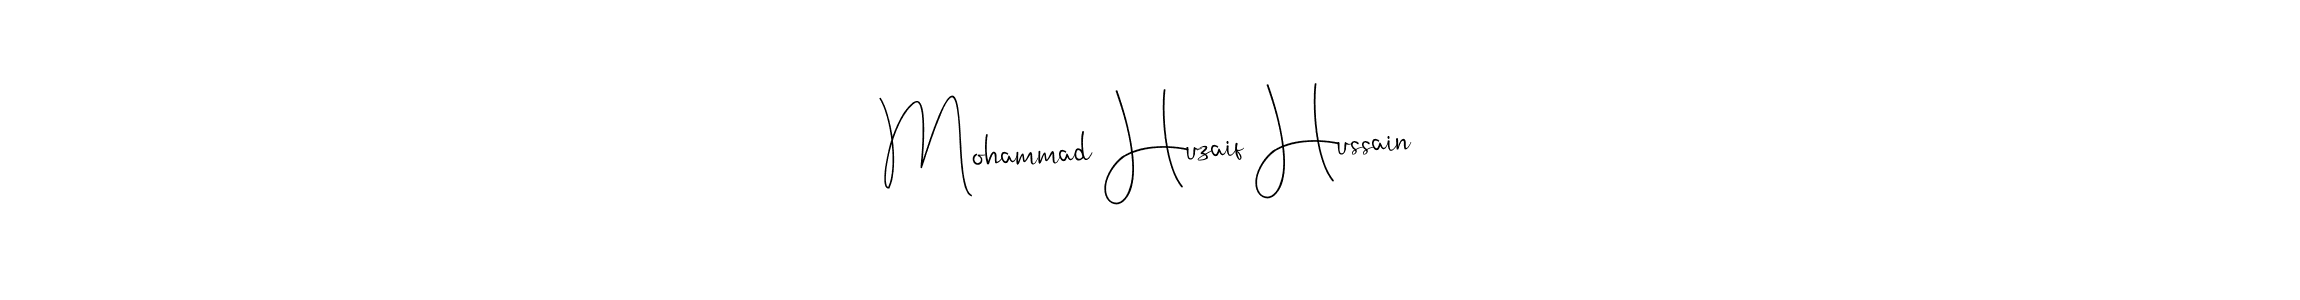 Mohammad Huzaif Hussain